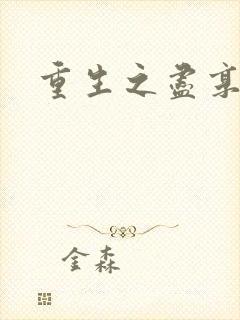 重生之盡
金森